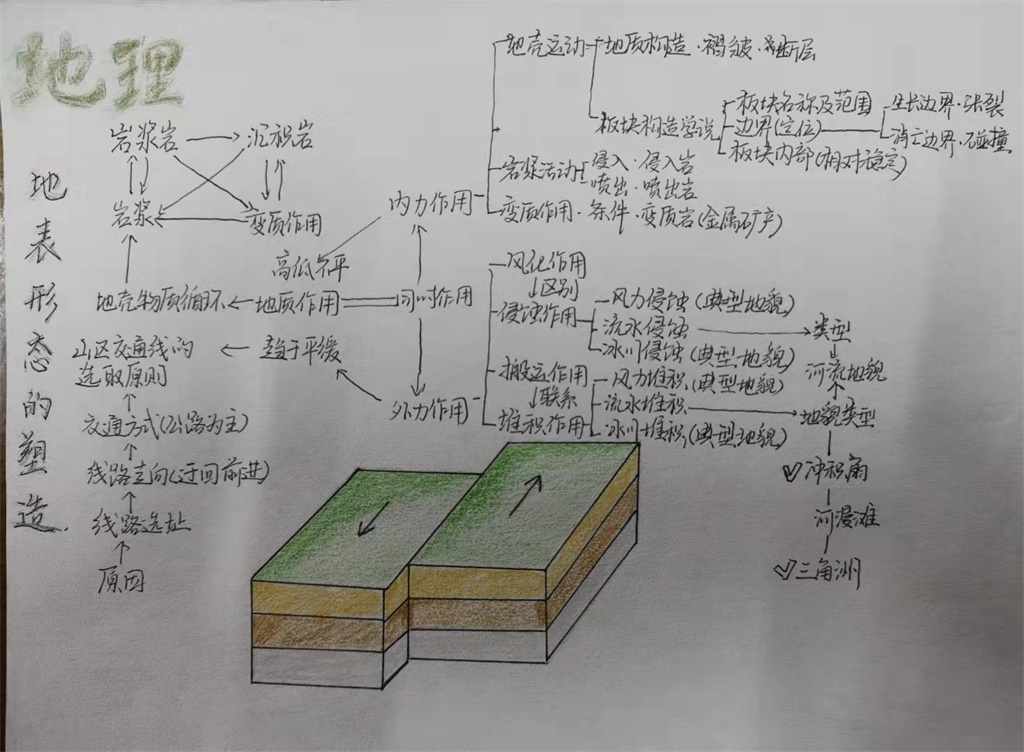 地理
地表形态的塑造.
岩浆岩
沉积岩
岩浆
变质作用
地壳物质循环
地质作用
同时作用
高低不平
趋于平缓
山区交通线的
选取原则
交通方式(公路为主)
线路走向(迂回前进)
线路选址
原因
内力作用
地壳运动
地质构造·褶皱·断层
板块构造学说
板块名称及范围
边界(定位)
板块内部(相对稳定)
生长边界·张裂
消亡边界·碰撞
岩浆活动
侵入·侵入岩
喷出·喷出岩
变质作用·条件·变质岩(金属矿产)
外力作用
风化作用
区别
侵蚀作用
风力侵蚀(典型地貌)
流水侵蚀
冰川侵蚀(典型地貌)
类型
河流地貌
搬运作用
联系
堆积作用
风力堆积(典型地貌)
流水堆积
冰川堆积(典型地貌)
地貌类型
冲积扇
河漫滩
三角洲